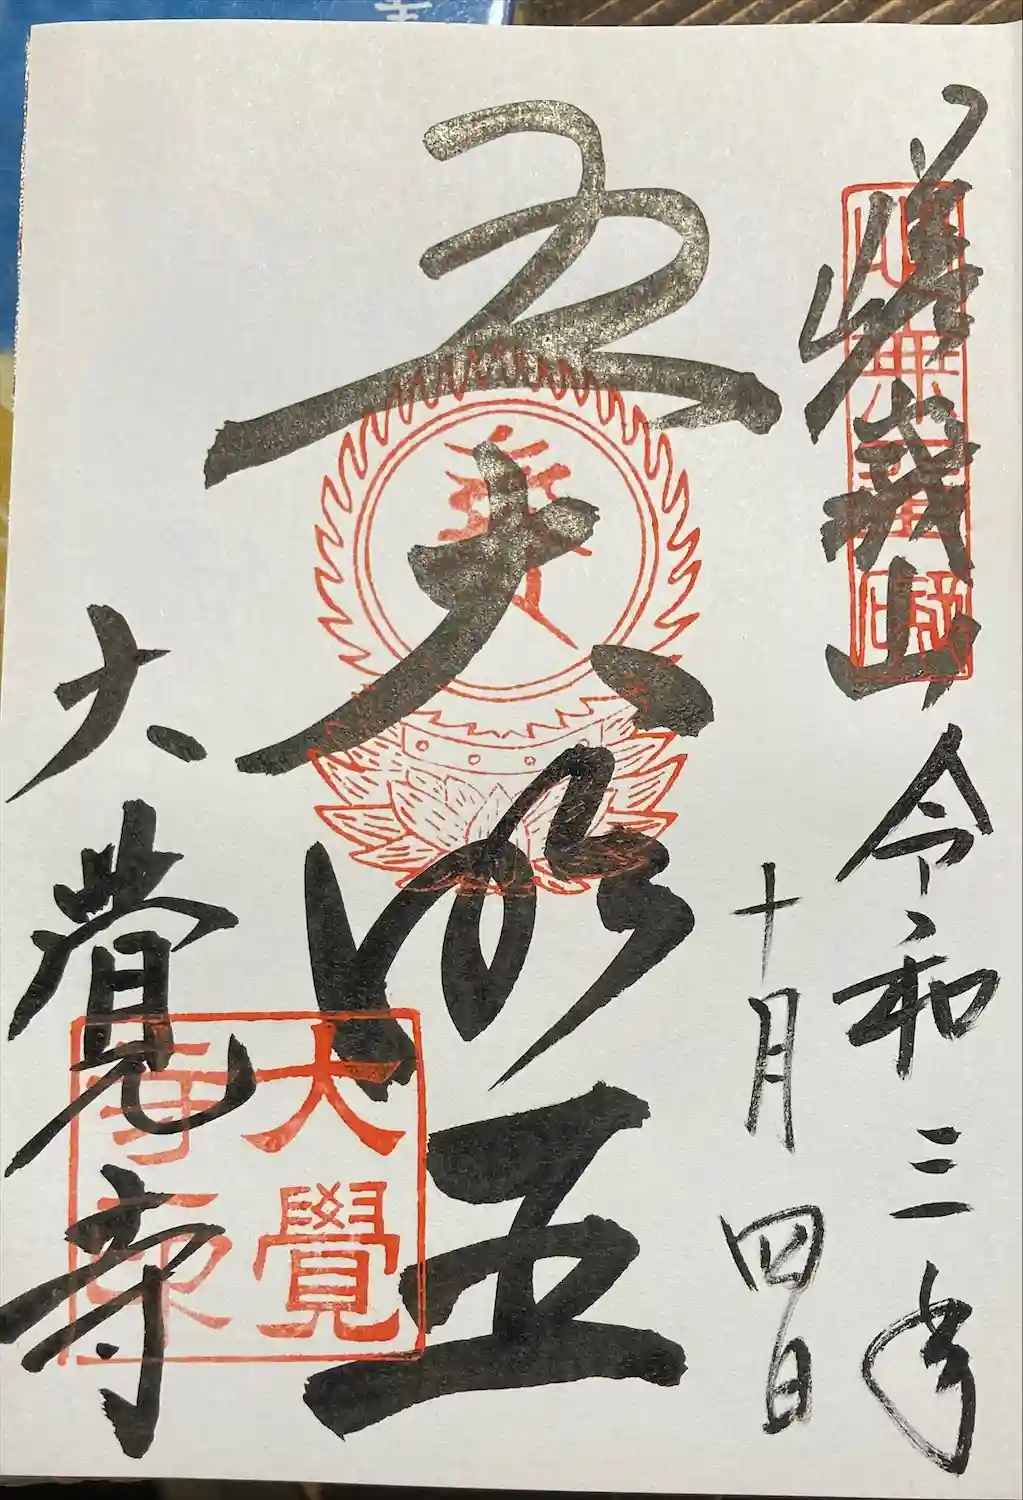 嵯峨山
令和三年
十月四日
五大明王
大覚寺
大覺
寺